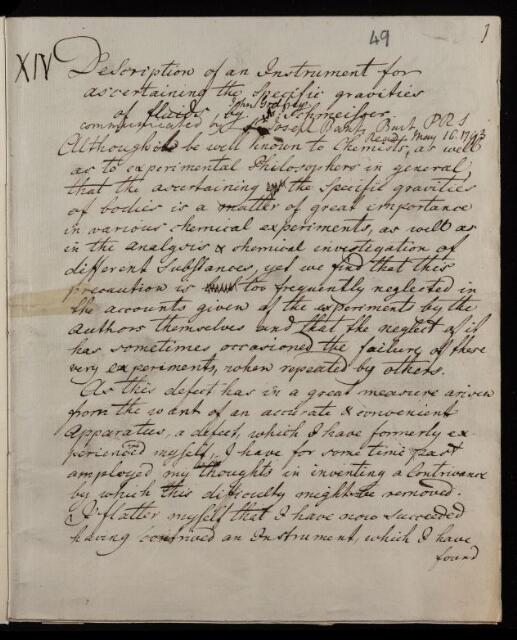 49
1
XIV
Description of an Instrument for
ascertaining the Specific gravities
of fluids by John Godfrey Schmeisser
communicated by Sir Joseph Banks Bart. P R S
Read May 16. 1793
Although it be well known to Chemists, as well
as to experimental Philosophers in general,
that the ascertaining the Specific gravities
of bodies is a matter of great importance
in various chemical experiments, as well as
in the analysis & chemical investigation of
different Substances, yet we find that this
precaution is too frequently neglected in
the accounts given of the experiment by the
Authors themselves and that the neglect of it
has sometimes occasioned the failure of these
very experiments, when repeated by others.
As this defect has in a great measure arisen
from the want of an accurate & convenient
Apparatus, a defect, which I have formerly ex-
perienced myself, I have for some time past
employed my thoughts in inventing a Contrivance
by which this difficulty might be removed.
I flatter myself that I have now succeeded
having contrived an Instrument, which I have
found